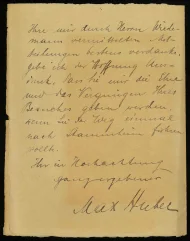 Ihre mir durch Herrn
mann vermittelten
bestens verdankt,
gebe ich der Hoffnung
, dass Sie mir die Ehre
und das Vergnügen Ihres
Besuches geben werden,
wenn Sie der Weg einmal
nach führen
sollte.
Ihr in Hochachtung
ganz ergebener
Max Huber